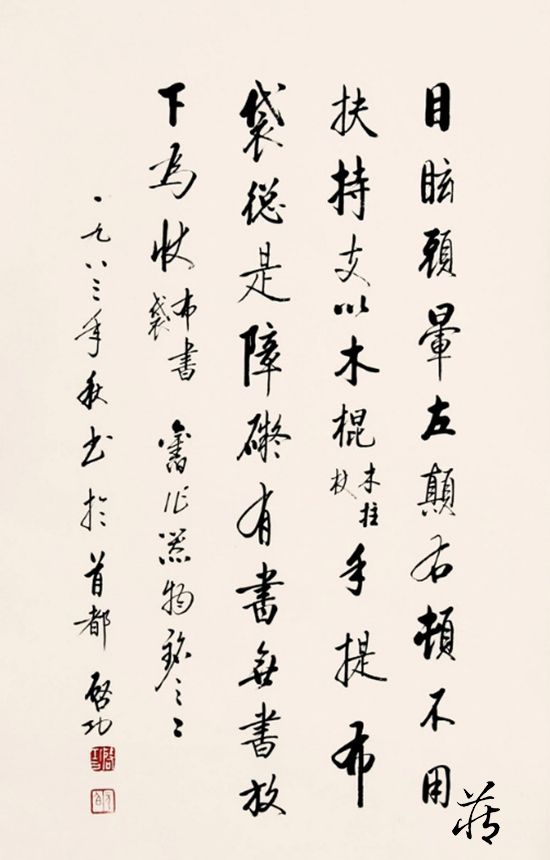 目眩頭暈左顛右頓不用
扶持支以木棍木拄杖手提布
袋總是障礙有書無書放
下為快布書袋 舊作器物銘之二
一九八三年秋書於首都 啟功